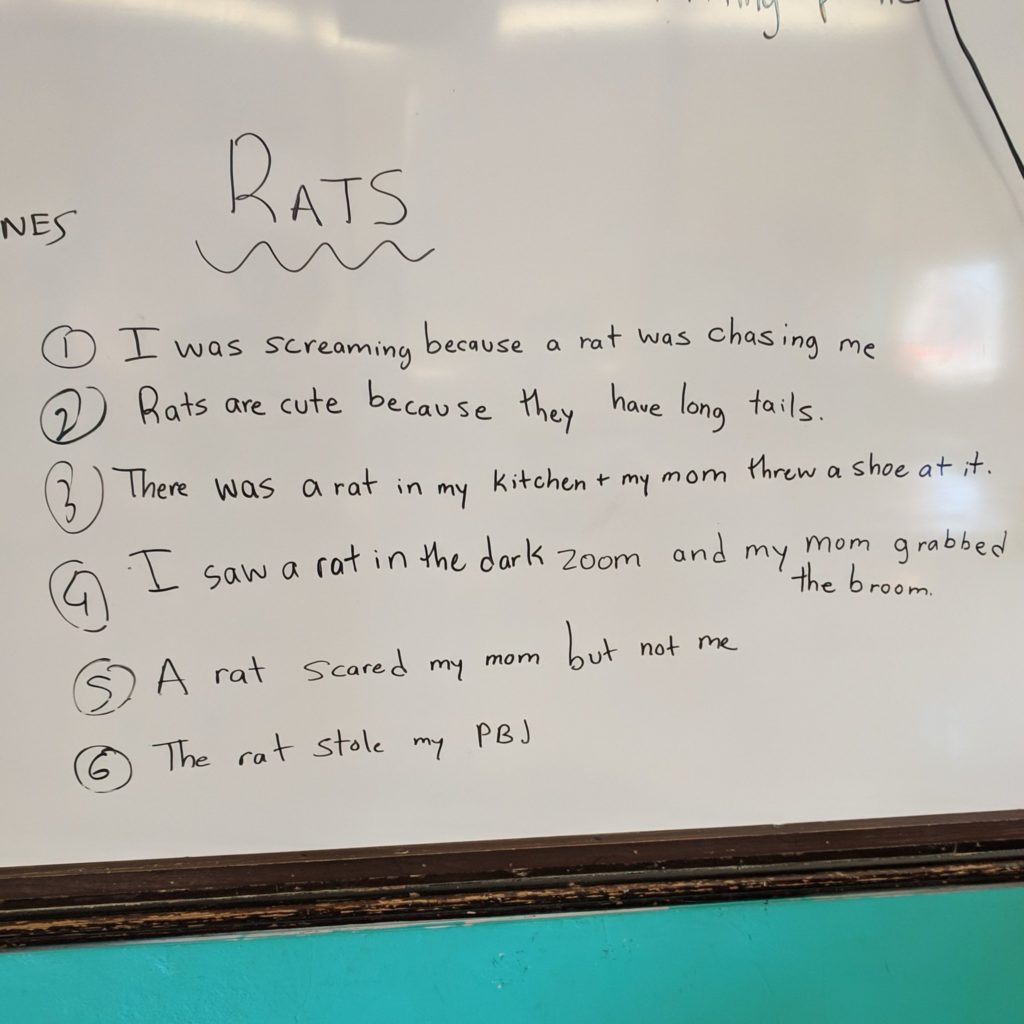 RATS
NES
① I was screaming because a rat was chasing me
② Rats are cute because they have long tails.
③ There was a rat in my kitchen + my mom threw a shoe at it.
④ I saw a rat in the dark zoom and my mom grabbed
the broom.
⑤ A rat scared my mom but not me
⑥ The rat stole my PBJ